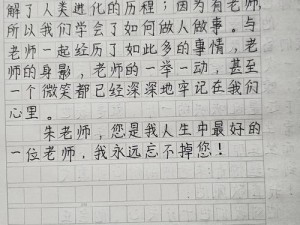 解了人类进化的历程；因为有老师，
所以我们学会了如何做人做事。与
老师一起经历了如此多的事情，老
师的身影，老师的一举一动，甚至
一个微笑都已经深深地牢记在我们
心里。
朱老师，您是我人生中最好的
一位老师，我永远忘不掉您！